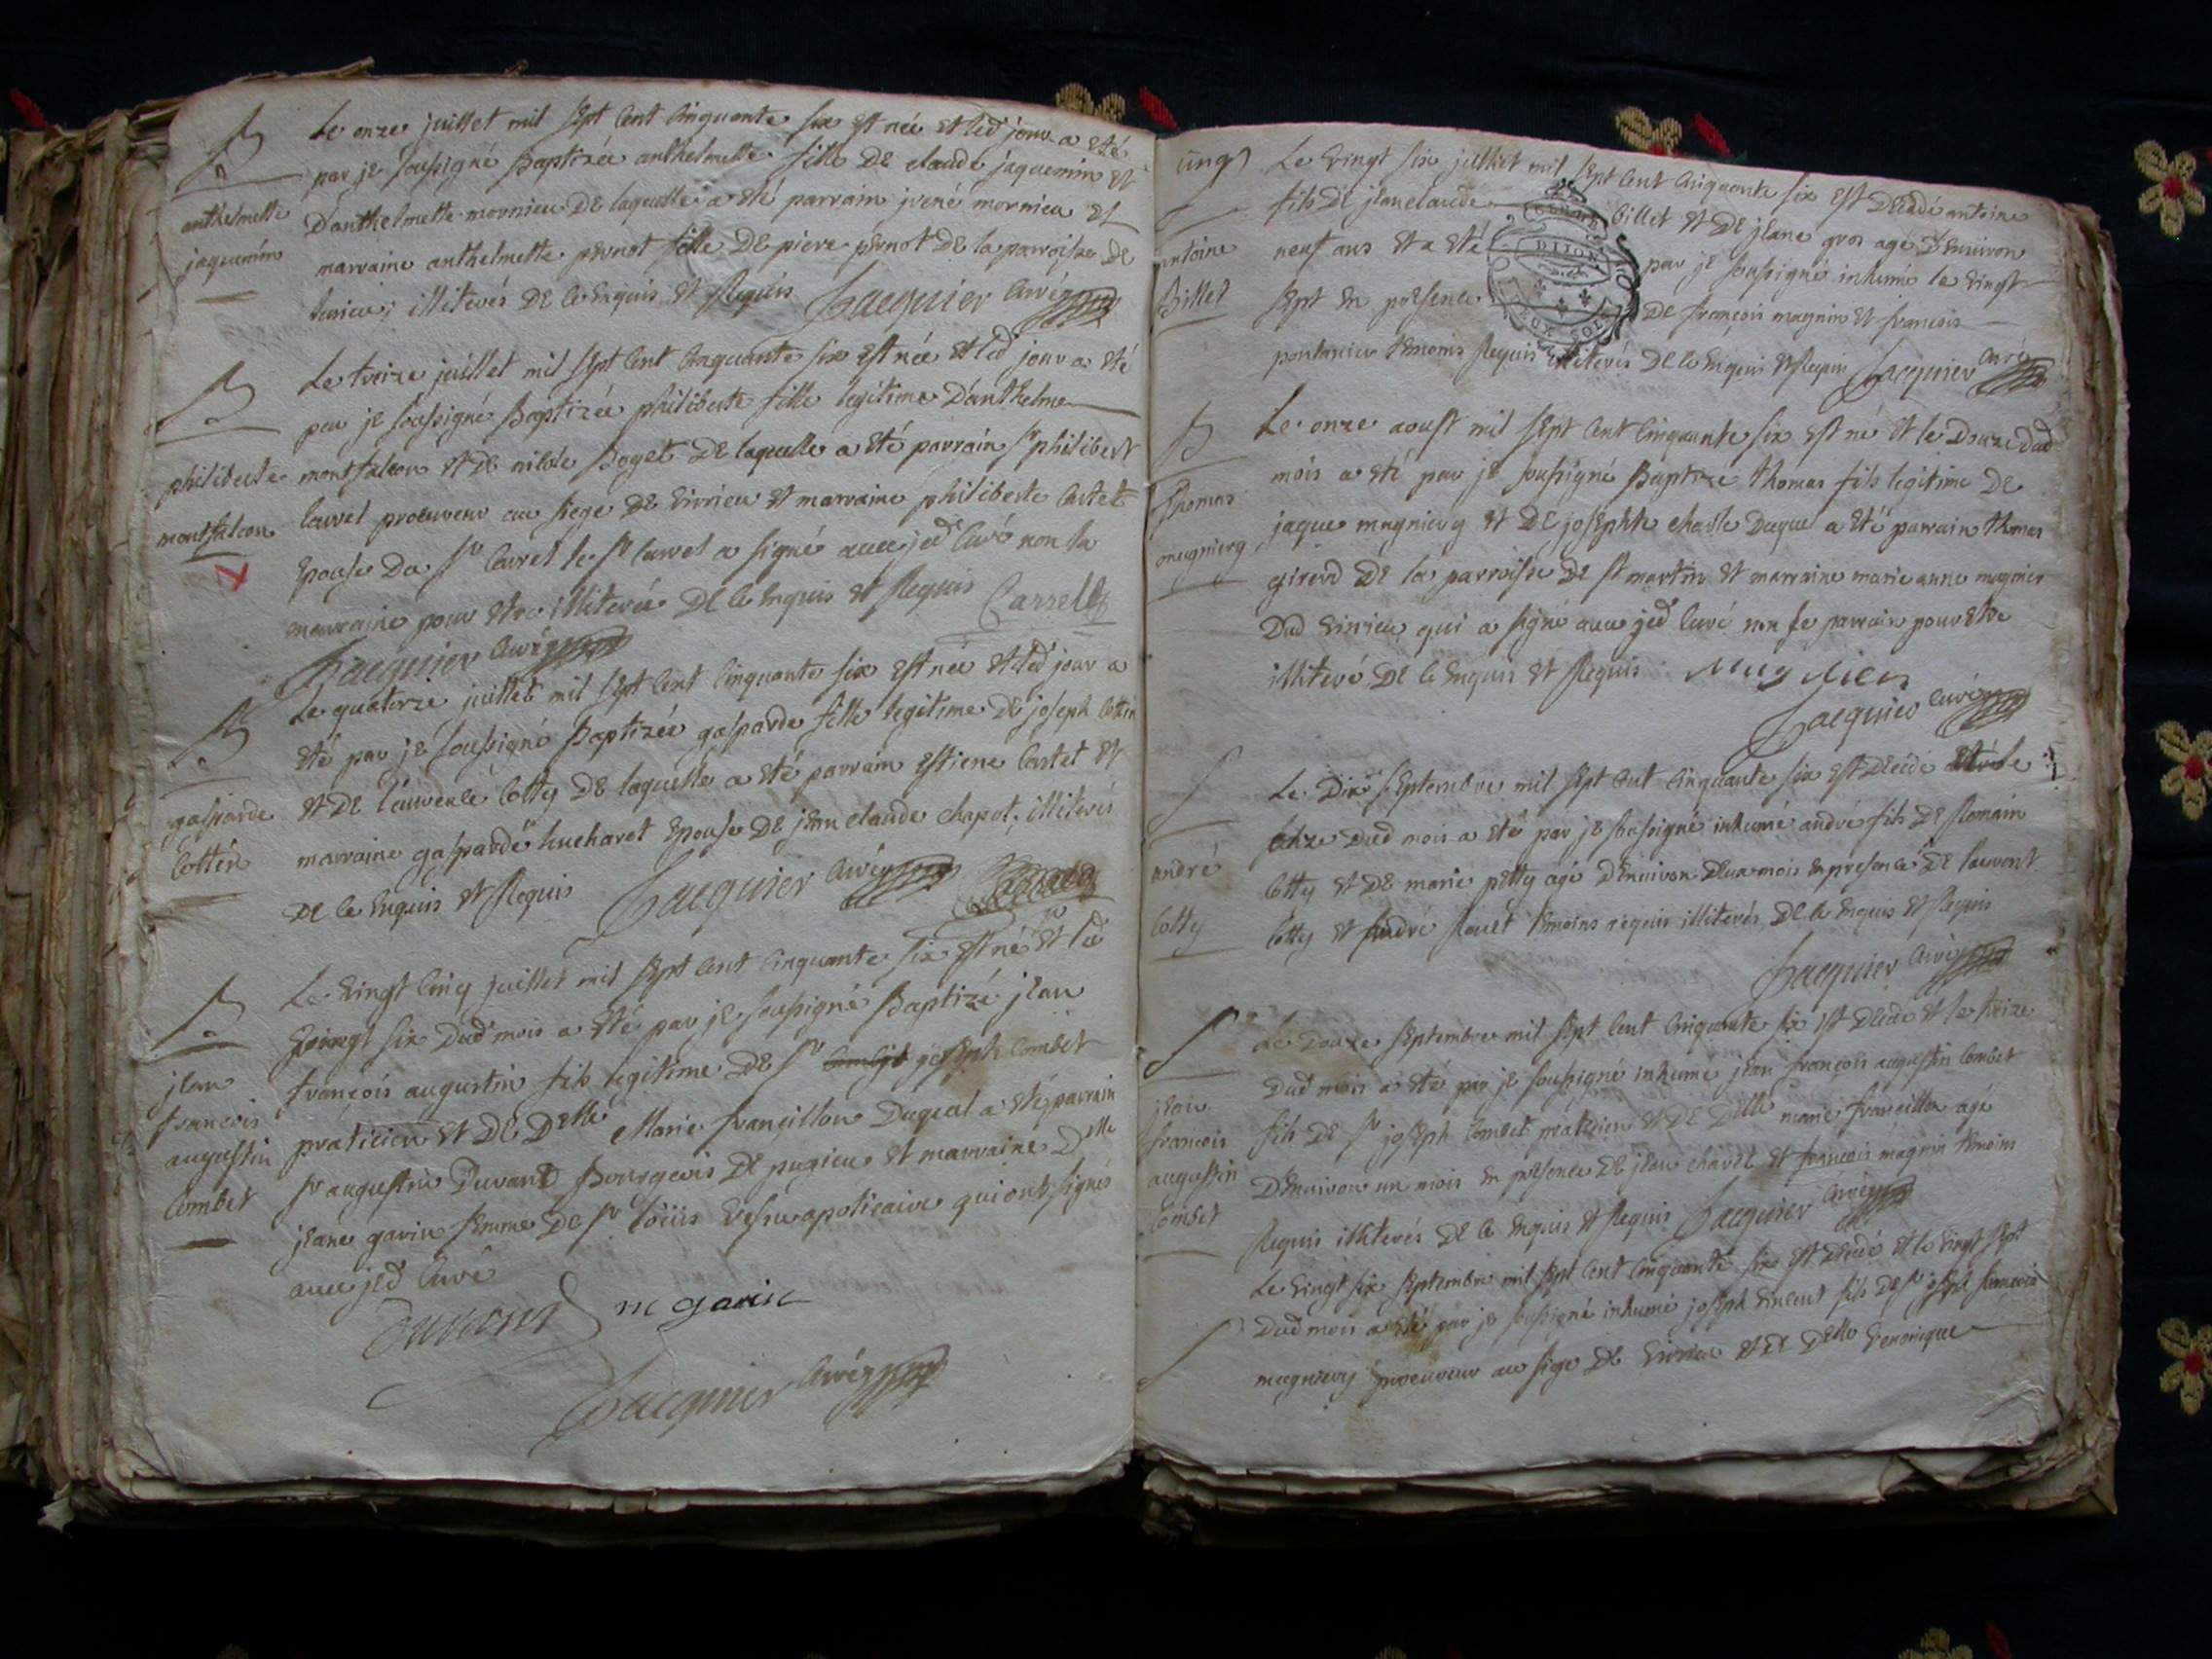 B
anthelmette
jaquemin
Le onze juillet mil sept cent cinquante six est née et led jour a eté
par je soussigné Baptizée anthelmette fille de claude jaquemin et
D'anthelmette mornieu de laquelle a eté parrain jrené mornieu et
marraine anthelmette pernot fille de piere pernot de la parroisse de
illiterés de ce enquis et requis Jacquier curé
B
philiberte
montfalcon
Le treize juillet mil sept cent cinquante six est née et led jour a eté
par je soussigné Baptizée philiberte fille legitime D'anthelme
montfalcon et de nicole Boget de laquelle a eté parrain sr philibert
Carrel procureur au siege de virieu et marraine philiberte Cortet
Epouse du sr Carrel le sr Carrel a signé avec jed curé non la
marraine pour etre illiterée de ce enquis et requis Carrel
Jacquier curé
B
gasparde
Cottin
Le quatorze juillet mil sept cent cinquante six est née et led jour a
eté par je soussigné Baptizée gasparde fille legitime de joseph Cottin
et de Cotty de laquelle a eté parrain estiene Cortet et
marraine gasparde hucharet Epouse de jean claude chapot, illiterés
de ce enquis et requis Jacquier curé
B
jean
francois
augustin
Combet
Le vingt cinq juillet mil sept cent cinquante six est né et le
vingt six dud mois a eté par je soussigné Baptizé jean
françois augustin fils legitime de sr joseph Combet
praticien et de Delle Marie françillon duquel a eté parrain
sr augustin Duvand Bourgeois de pugieu et marraine Delle
jeane gavin femme de sr apoticaire qui ont signé
avec jed curé
Duvand m gavin
Jacquier curé
antoine
Billet
Le vingt six juillet mil sept cent cinquante six est decedé antoine
fils de jean claude Billet et de jeane gros agé d'environ
neuf ans et a eté par je soussigné inhumé le vingt
sept en presence de françois magnin et francois
pontanieu temoins requis illiterés de ce enquis et requis Jacquier curé
DIJON
DEUX SOLS
B
Thomas
mugniery
Le onze aoust mil sept cent cinquante six est né et le Douze dud
mois a eté par je soussigné Baptize thomas fils legitime de
jaque mugniery et de josephte chasle duquel a eté parrain thomas
girerd de la parroisse de st martin et marraine marie anne mugnier
Dud virieu qui a signé avec jed curé non le parrain pour etre
illiteré de ce enquis et requis Mugnier
Jacquier curé
S
andré
Cotty
Le Dix septembre mil sept cent cinquante six est decedé et le
onze dud mois a eté par je soussigné inhumé andré fils de Romain
Cotty et de marie petty agé d'environ deux mois en presence de laurent
Cotty et andré Rouët temoins requis illiterés de ce enquis et requis
Jacquier curé
S
jean
francois
augustin
Combet
Le Douze septembre mil sept cent cinquante six est decedé et le treize
Dud mois a eté par je soussigné inhumé jean françois augustin Combet
fils de sr joseph Combet praticien et de Delle marie françillon agé
D'environ un mois en presence de jean chavet et francois magnin temoins
Requis illiterés de ce enquis et requis Jacquier curé
S
Le vingt six septembre mil sept cent cinquante six est decedé et le vingt sept
Dud mois a eté par je soussigné inhumé joseph vincent fils de sr joseph
mugniery procureur au siege de virieu et de Delle veronique